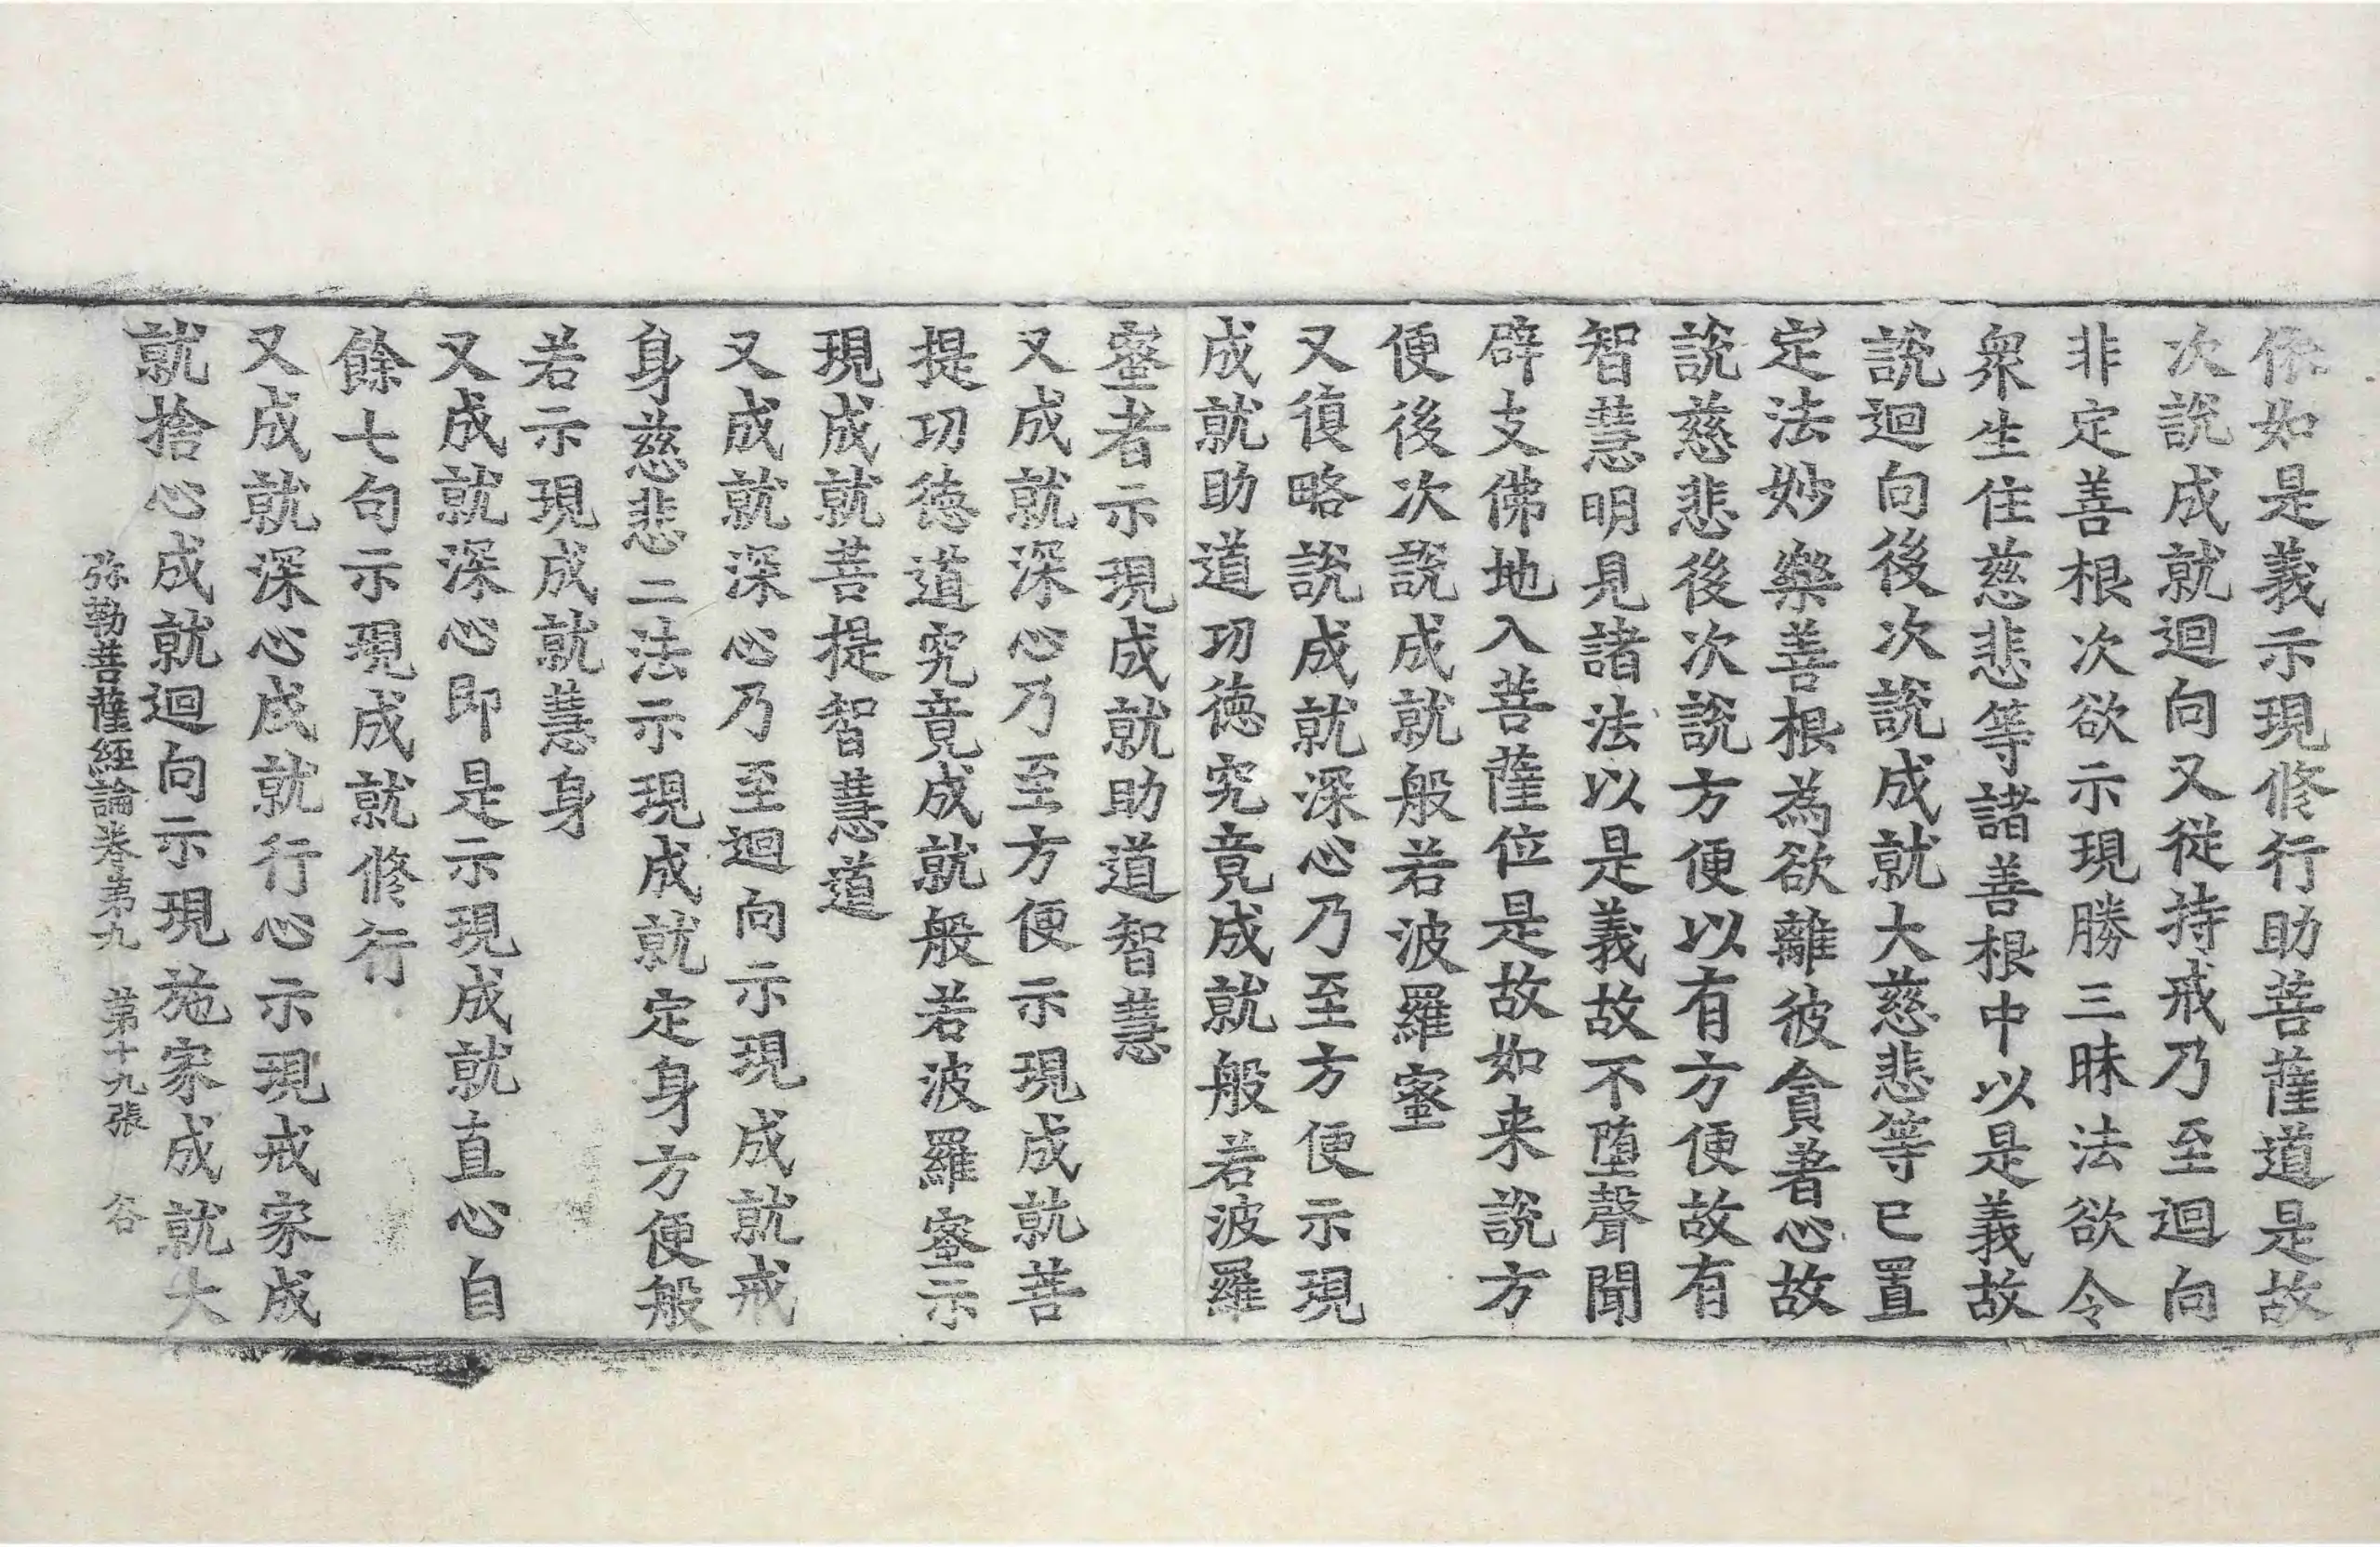 依如是義示現修行助菩薩道是故
次說成就迴向又從持戒乃至迴向
非定善根次欲示現勝三昧法欲令
衆生住慈悲等諸善根中以是義故
說迴向後次說成就大慈悲等已置
定法妙樂善根為欲離彼貪著心故
說慈悲後次說方便以有方便故有
智慧明見諸法以是義故不墮聲聞
辟支佛地入菩薩位是故如来說方
便後次說成就般若波羅蜜
又復略說成就深心乃至方便示現
成就助道功德究竟成就般若波羅
蜜者示現成就助道智慧
又成就深心乃至方便示現成就菩
提功德道究竟成就般若波羅蜜示
現成就菩提智慧道
又成就深心乃至迴向示現成就戒
身慈悲二法示現成就定身方便般
若示現成就慧身
又成就深心即是示現成就直心自
餘七句示現成就修行
又成就深心成就行心示現戒家成
就捨心成就迴向示現施家成就大
弥勒菩薩經論卷第九　第十九張　谷